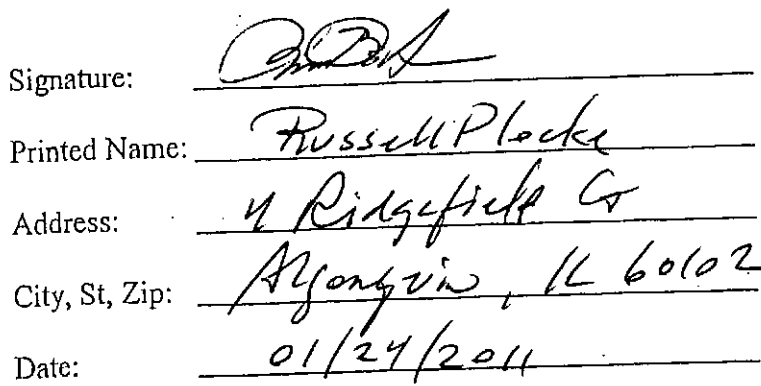 Signature:
Printed Name: Russell Plecke
Address: 4 Ridgefield Ct
City, St, Zip: Algonquin, IL 60102
Date: 01/24/2011